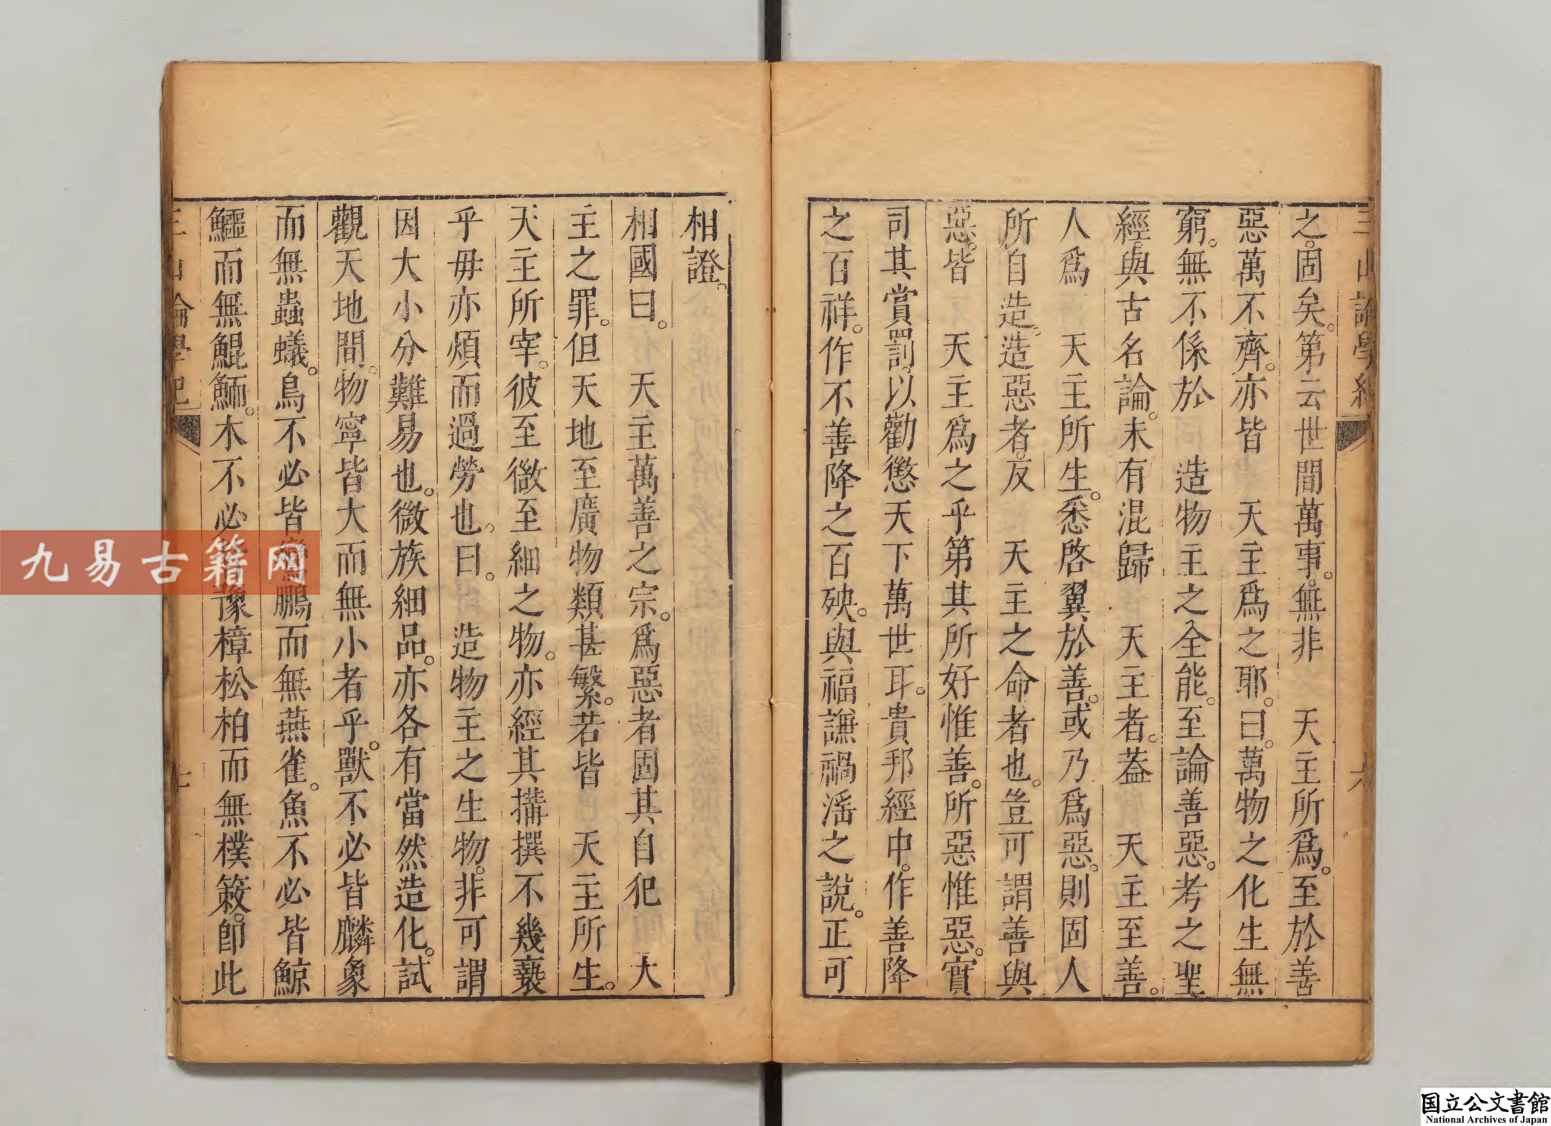 之。固矣。第云世間萬事。無非　天主所爲。至於善
惡萬不齊。亦皆　天主爲之耶。曰。萬物之化生無
窮。無不係於　造物主之全能。至論善惡。考之聖
經與古名論。未有混歸　天主者。葢　天主至善。
人爲　天主所生。悉啓翼於善。或乃爲惡。則固人
所自造。造惡者反　天主之命者也。豈可謂善與
惡。皆　天主爲之乎。第其所好惟善。所惡惟惡。實
司其賞罰。以勸懲天下萬世耳。貴邦經中。作善降
之百祥。作不善降之百殃。與福謙禍滛之說。正可
相證。
相國曰。　天主萬善之宗。爲惡者固其自犯　大
主之罪。但天地至廣。物類甚繁。若皆　天主所生。
天主所宰。彼至微至細之物。亦經其搆撰。不幾褻
乎。毋亦煩而過勞也。曰。　造物主之生物。非可謂
因大小分難易也。微族細品。亦各有當然造化。試
觀天地間。物寧皆大而無小者乎。獸不必皆麟象
而無蟲蟻。鳥不必皆鸞鵬而無燕雀。魚不必皆鯨
鱷而無鯤鮞。木不必豫樟松柏而無樸簌。卽此
三山論學紀
九易古籍网
国立公文書館
National Archives of Japan